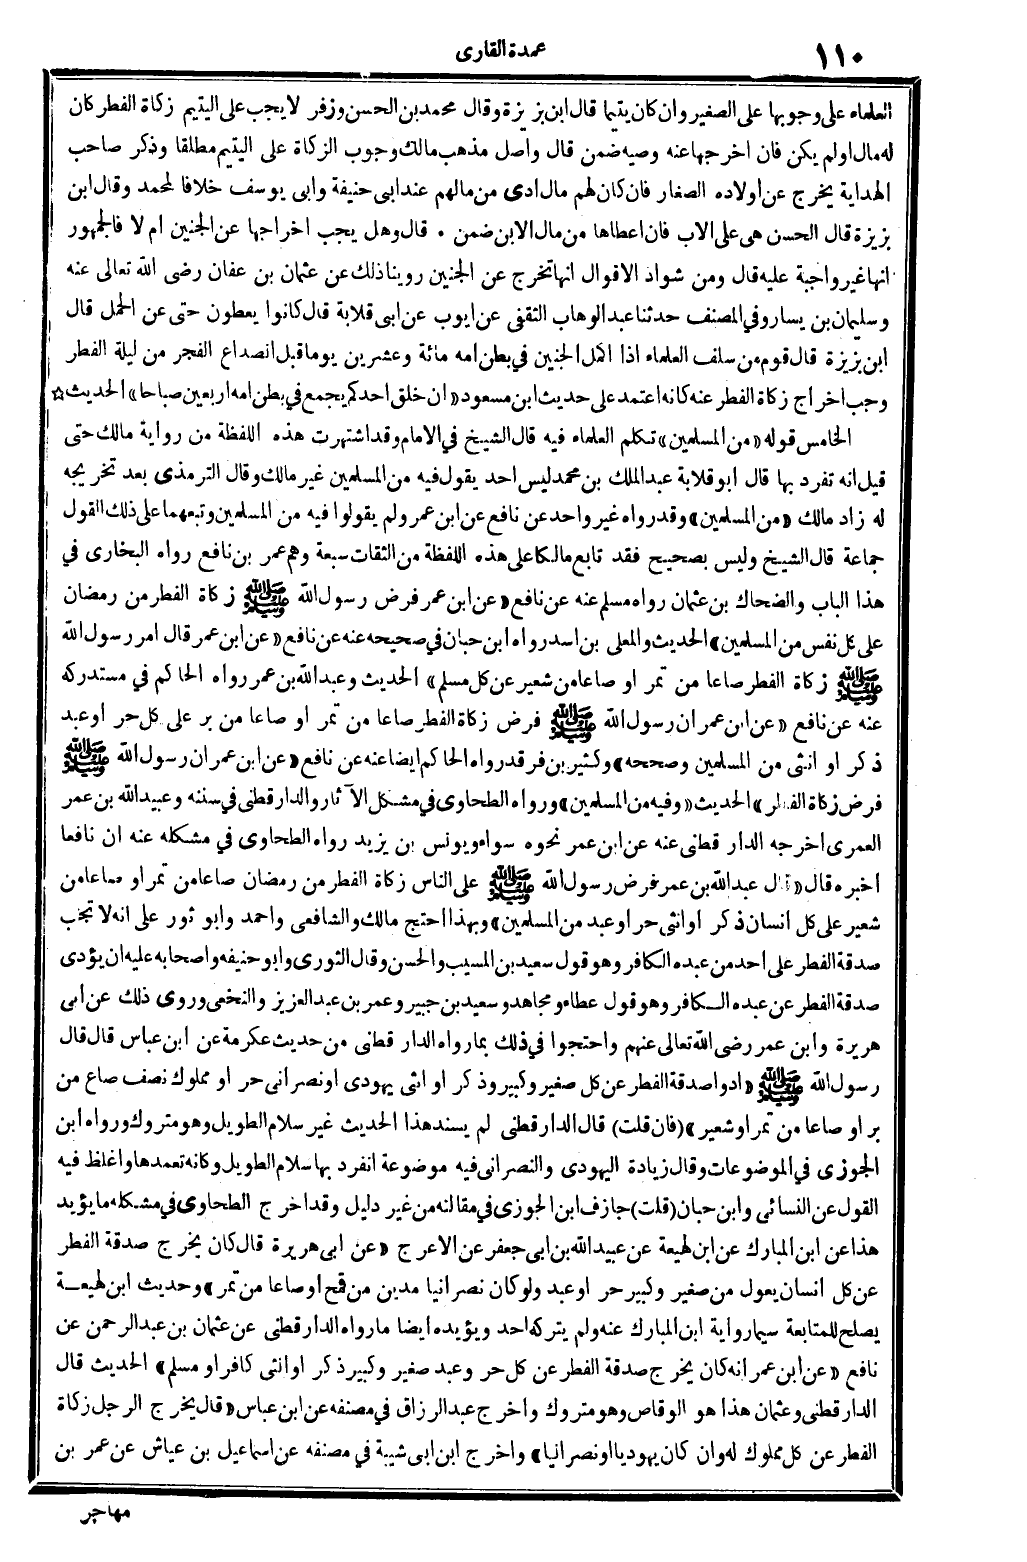 ١١٠
عمدة القارى
العلماء على وجوبها على الصغير وان كان يتيما قال ابن بزيزة وقال محمد بن الحسن وزفر لا يجب على اليتيم زكاة الفطر كان
له مال اولم يكن فان اخرجها عنه وصيه ضمن قال واصل مذهب مالك وجوب الزكاة على اليتيم مطلقا وذكر صاحب
الهداية يخرج عن اولاده الصغار فان كان لهم مال ادى من مالهم عند ابى حنيفة وابى يوسف خلافا لمحمد وقال ابن
بزيزة قال الحسن هى على الاب فان اعطاها من مال الابن ضمن ٠ قال وهل يجب اخراجها عن الجنين ام لا فالجمهور
انها غير واجبة عليه قال ومن شواد الاقوال انها تخرج عن الجنين روينا ذلك عن عثمان بن عفان رضى الله تعالى عنه
وسليمان بن يسار وفي المصنف حدثنا عبد الوهاب الثقفى عن ايوب عن ابى قلابة قال كانوا يعطون حتى عن الحمل قال
ابن بزيزة قال قوم من سلف العلماء اذا اكمل الجنين في بطن امه مائة وعشرين يوما قبل انصداع الفجر من ليلة الفطر
وجب اخراج زكاة الفطر عنه كانه اعتمد على حديث ابن مسعود «ان خلق احدكم يجمع في بطن امه اربعين صباحا» الحديث ☆
الخامس قوله «من المسلمين» تكلم العلماء فيه قال الشيخ في الامام وقد اشتهرت هذه اللفظة من رواية مالك حتى
قيل انه تفرد بها قال ابو قلابة عبد الملك بن محمد ليس احد يقول فيه من المسلمين غير مالك وقال الترمذى بعد تخريجه
له زاد مالك «من المسلمين» وقد رواه غير واحد عن نافع عن ابن عمر ولم يقولوا فيه من المسلمين وتبعهما على ذلك القول
جماعة قال الشيخ وليس بصحيح فقد تابع مالكا على هذه اللفظة من الثقات سبعة وهم عمر بن نافع رواه البخارى في
هذا الباب والضحاك بن عثمان رواه مسلم عنه عن نافع «عن ابن عمر فرض رسول الله ﷺ زكاة الفطر من رمضان
على كل نفس من المسلمين» الحديث والمعلى بن اسد رواه ابن حبان في صحيحه عنه عن نافع «عن ابن عمر قال امر رسول الله
ﷺ زكاة الفطر صاعا من تمر او صاعا من شعير عن كل مسلم» الحديث وعبد الله بن عمر رواه الحاكم في مستدركه
عنه عن نافع «عن ابن عمر ان رسول الله ﷺ فرض زكاة الفطر صاعا من تمر او صاعا من بر على كل حر او عبد
ذكر او انثى من المسلمين وصححه» وكثير بن فرقد رواه الحاكم ايضا عنه عن نافع «عن ابن عمر ان رسول الله ﷺ
فرض زكاة الفطر» الحديث «وفيه من المسلمين» ورواه الطحاوى في مشكل الآثار والدار قطنى في سننه وعبيد الله بن عمر
العمرى اخرجه الدار قطنى عنه عن ابن عمر نحوه سواء ويونس بن يزيد رواه الطحاوى في مشكله عنه ان نافعا
اخبره قال «قال عبد الله بن عمر فرض رسول الله ﷺ على الناس زكاة الفطر من رمضان صاعا من تمر او صاعا من
شعير على كل انسان ذكر او انثى حر او عبد من المسلمين» وبهذا احتج مالك والشافعى واحمد وابو ثور على انه لا تجب
صدقة الفطر على احد من عبده الكافر وهو قول سعيد بن المسيب والحسن وقال الثورى وابو حنيفه واصحابه عليه ان يؤدى
صدقة الفطر عن عبده الكافر وهو قول عطاء ومجاهد وسعيد بن جبير وعمر بن عبد العزيز والنخعى وروى ذلك عن أبى
هريرة وابن عمر رضى الله تعالى عنهم واحتجوا في ذلك بما رواه الدار قطنى من حديث عكرمة عن ابن عباس قال قال
رسول الله ﷺ «ادوا صدقة الفطر عن كل صغير وكبير وذكر او انثى يهودى او نصرانى حر او مملوك نصف صاع من
بر او صاعا من تمر او شعير» (فان قلت) قال الدار قطنى لم يسند هذا الحديث غير سلام الطويل وهو متروك ورواه ابن
الجوزى في الموضوعات وقال زيادة اليهودى والنصرانى فيه موضوعة انفرد بها سلام الطويل وكانه تعمدها واغلظ فيه
القول عن النسائى وابن حبان (قلت) جازف ابن الجوزى في مقالته من غير دليل وقد اخرج الطحاوى في مشكله ما يؤيد
هذا عن ابن المبارك عن ابن لهيعة عن عبيد الله بن ابى جعفر عن الاعرج «عن ابى هريرة قال كان يخرج صدقة الفطر
عن كل انسان يعول من صغير وكبير حر او عبد ولو كان نصرانيا مدين من قمح او صاعا من تمر» وحديث ابن لهيعة
يصلح للمتابعة سيما رواية ابن المبارك عنه ولم يتركه احد ويؤيده ايضا ما رواه الدار قطنى عن عثمان بن عبد الرحمن عن
نافع «عن ابن عمر انه كان يخرج صدقة الفطر عن كل حر وعبد صغير وكبير ذكر او انثى كافر او مسلم» الحديث قال
الدار قطنى وعثمان هذا هو الوقاص وهو متروك واخرج عبد الرزاق في مصنفه عن ابن عباس «قال يخرج الرجل زكاة
الفطر عن كل مملوك له وان كان يهوديا او نصرانيا» واخرج ابن ابى شيبة في مصنفه عن اسماعيل بن عياش عن عمر بن
مهاجر